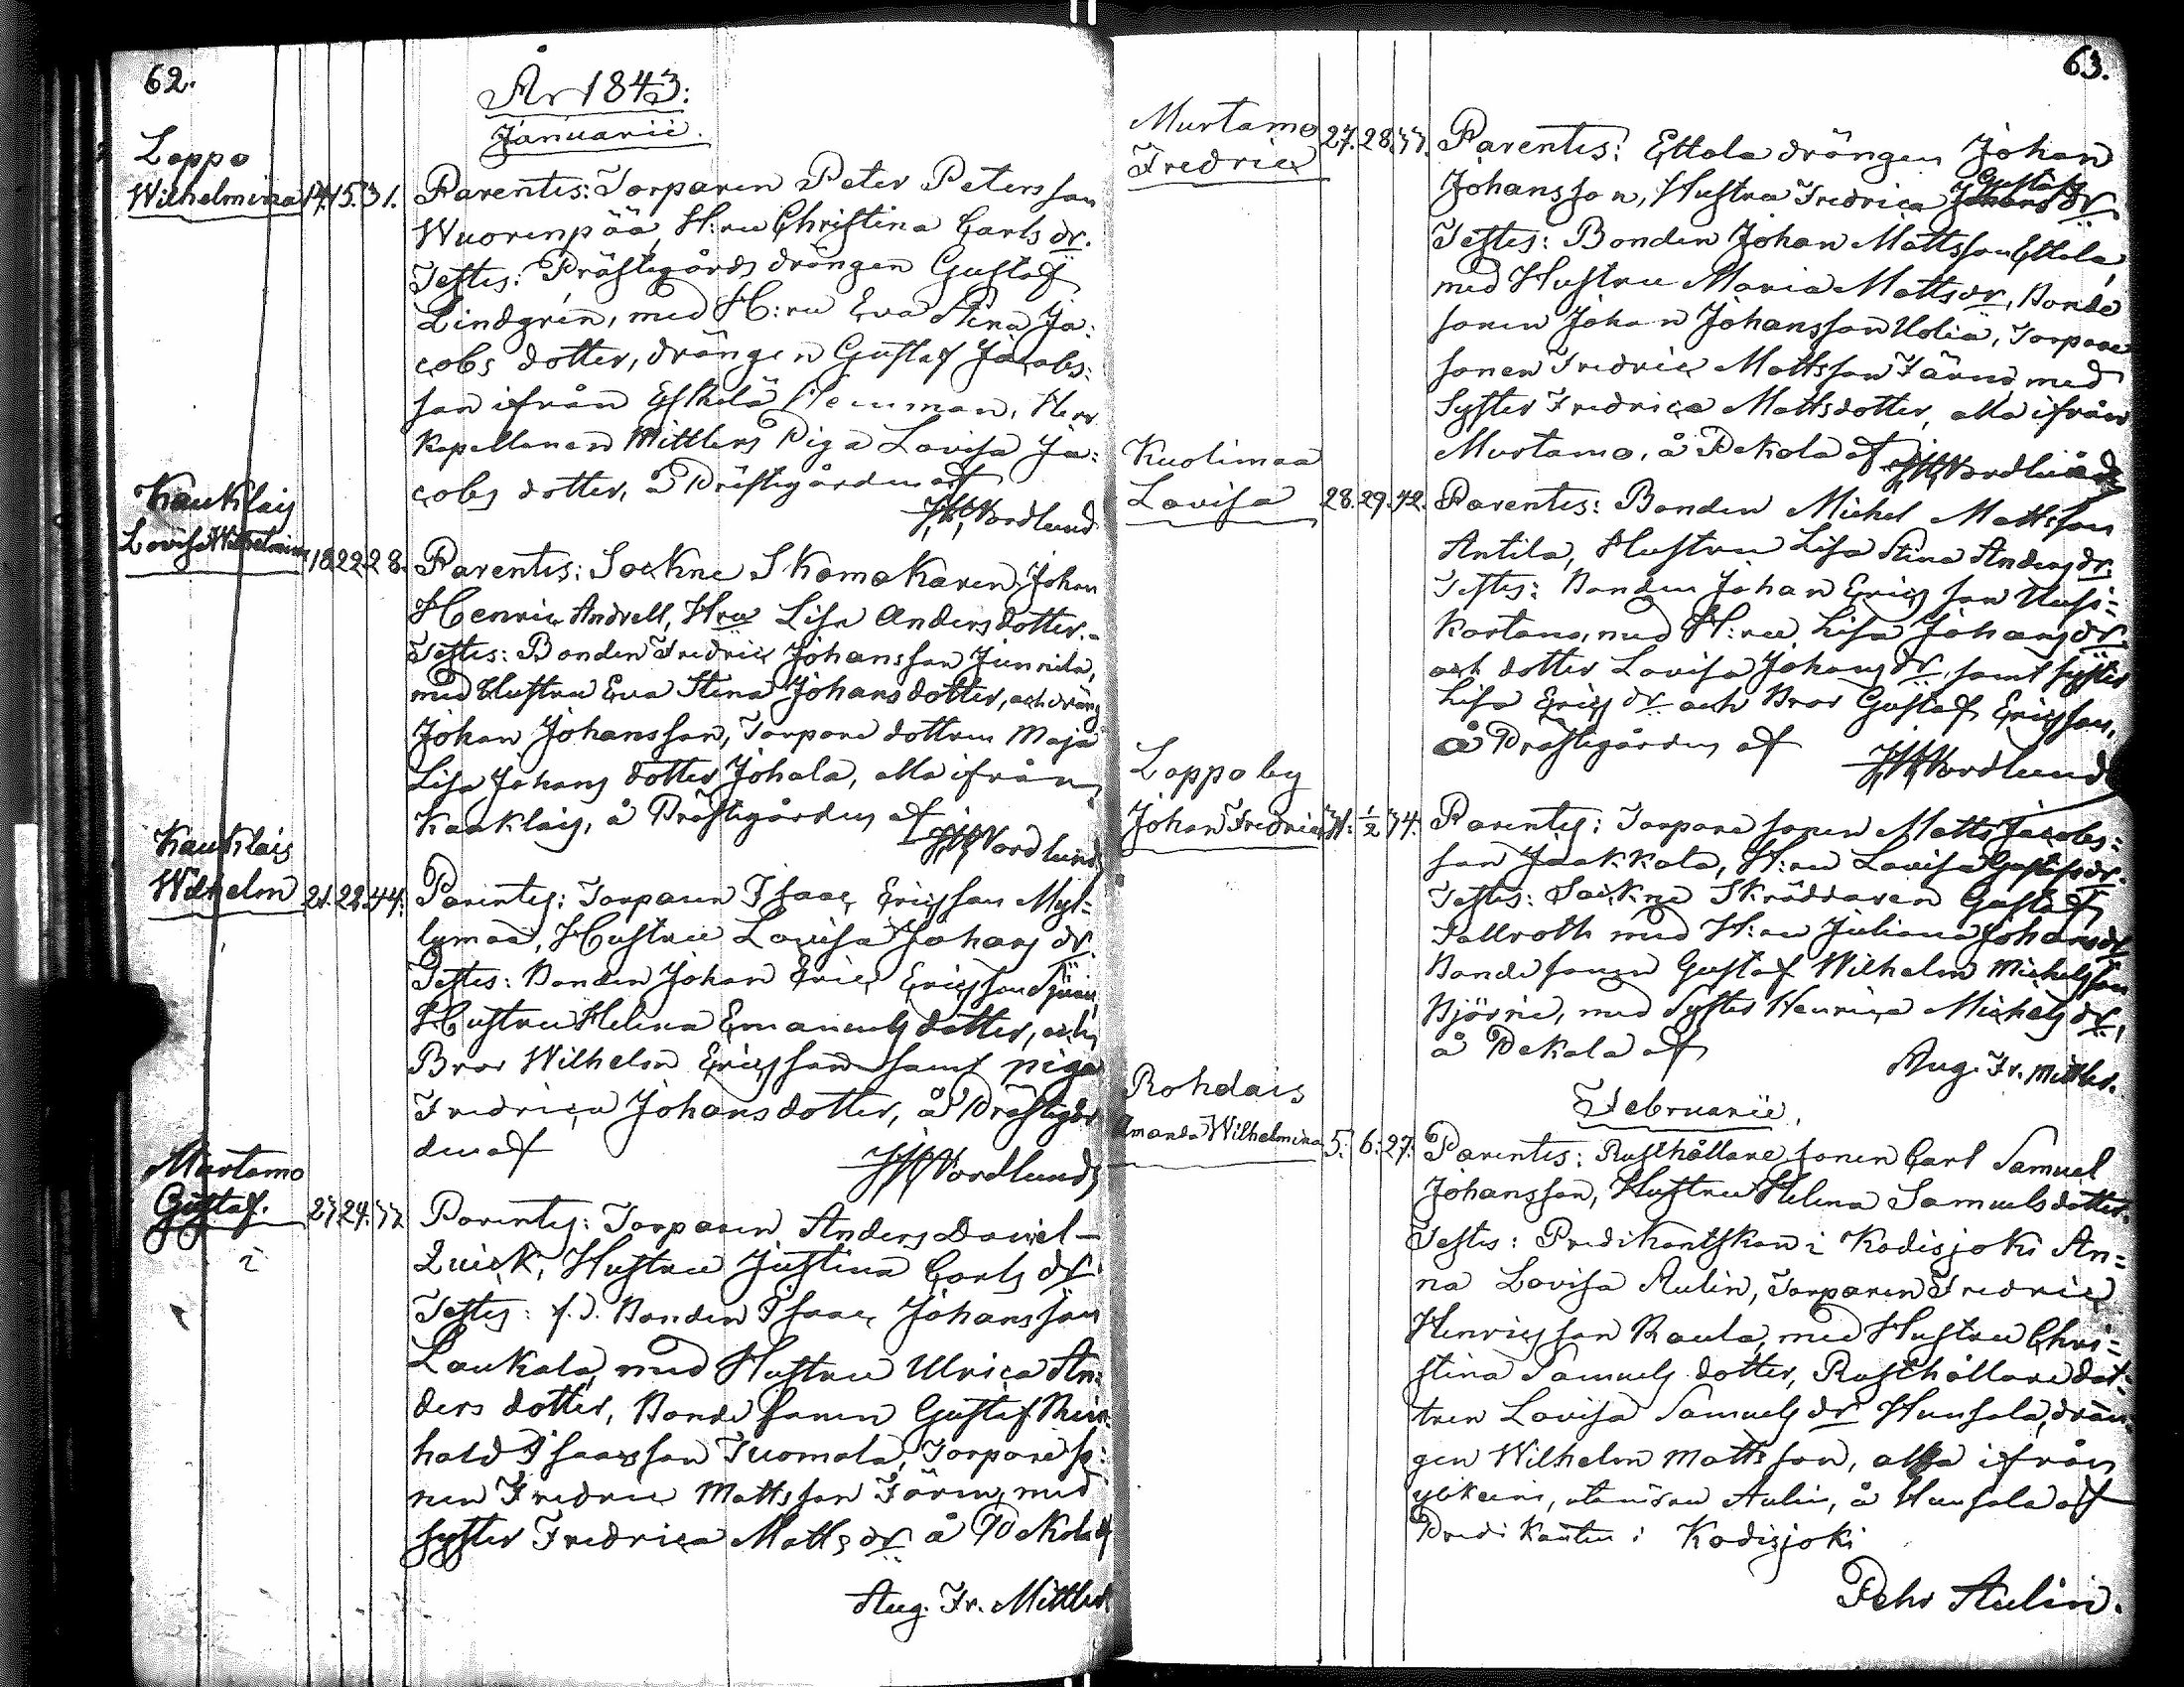 62.
År 1843.
Januarii.
Loppo
Wilhelmina 14. 15. 31.
Parentes: Torparen Peter Petersson
Wuorenpää, H:ru Christina Carls dr.
Testes: Prästegårds drängen Gustaf
Lindgrén, med H:ru Eva Stina Ja:
cobs dotter, drängen Gustaf Jacobs:
son ifrån Eskelä Hemman, Herr
Kapellanen Mittlers Piga Lovisa Ja:
cobs dotter, å Prästegården af
Nordlund
Kauklais
Lovisa Wilhelmina 18. 22. 28.
Parentes: Sockne Skomakaren Johan
Henric Andrell, Hru Lisa Andersdotter.
Testes: Bonden Fredric Johansson Junnila,
med Hustru Eva Stina Johansdotter, och dräng
Johan Johansson, Torpare dottren Maja
Lisa Johans dotter Johala, alla ifrån
Kauklais, å Prästegården af
Nordlund
Kauklais
Wilhelm 21. 22. 44.
Parentes: Torparen Isaac Ericsson Myl=
lymaa, Hustru Lovisa Johans dr.
Testes: Bonden Johan Eric Ericsson
Hustru Helena Emanuels dotter, och
Bror Wilhelm Ericsson samt piga
Fredrica Johans dotter, å Prästegår
den af
Nordlund
Murtamo
Gustaf. 23. 24. 37.
Parentes: Torparen Anders Daniel
Quick, Hustru Justina Carls dr
Testes: f.d. Bonden Isaac Johansson
Laukala, med Hustru Ulrica An:
ders dotter, Bonde sonen Gustaf Rein:
hold Isaacsson Tuomola, Torpare so:
nen Fredric Mattsson Järnu, med
syster Fredrica Matts dr å Pekola af
Aug. Fr. Mittler
63.
Murtamo
Fredric 27. 28. 37.
Parentes: Ettola drängen Johan
Johansson, Hustru Fredrica Gustafs dr
Testes: Bonden Johan Mattsson Ettola,
med Hustru Maria Matts dr, Bonde
sonen Johan Johansson Uolia, Torpare
sonen Fredric Mattsson Järnu med
Syster Fredrica Mattsdotter, alla ifrån
Murtamo, å Pekola af
Nordlund
Kuolimaa
Lovisa 28. 29. 42.
Parentes: Bonden Michel Mattsson
Antila, Hustru Lisa Stina Anders dr.
Testes: Bonden Johan Ericsson Uusi=
kartano, med H:ru Lisa Johans dr.
och dotter Lovisa Johans dr, samt syster
Lisa Erics dr och Bror Gustaf Ericsson,
å Prästegården af
Nordlund
Loppo by
Johan Fredric 31. 1/2 34.
Parentes: Torpare sonen Matts Jacobs=
son Jaakkola, H:ru Lovisa Gustafs dr.
Testes: Sockne Skräddaren Gustaf
Fallroth med H:ru Juliana Johans dr
Bonde sonen Gustaf Wilhelm Michelsson
Björni, med Syster Henrica Michels dr,
å Pekola af
Aug. Fr. Mittler.
Februarii.
Rohdais
Amanda Wilhelmina 5. 6. 27.
Parentes: Rusthållare sonen Carl Samuel
Johansson, Hustru Helena Samuelsdotter.
Testes: Predikantskan i Kodisjoki An=
na Lovisa Aulin, Torparen Fredric
Henricsson Raula, med Hustru Chri=
stina Samuels dotter, Rusthållare dot=
tren Lovisa Samuels dr Hunsala, drän=
gen Wilhelm Mattsson, alla ifrån
utom fru Aulin, å Hunsala af
Predikanten i Kodisjoki
Pehr Aulin.